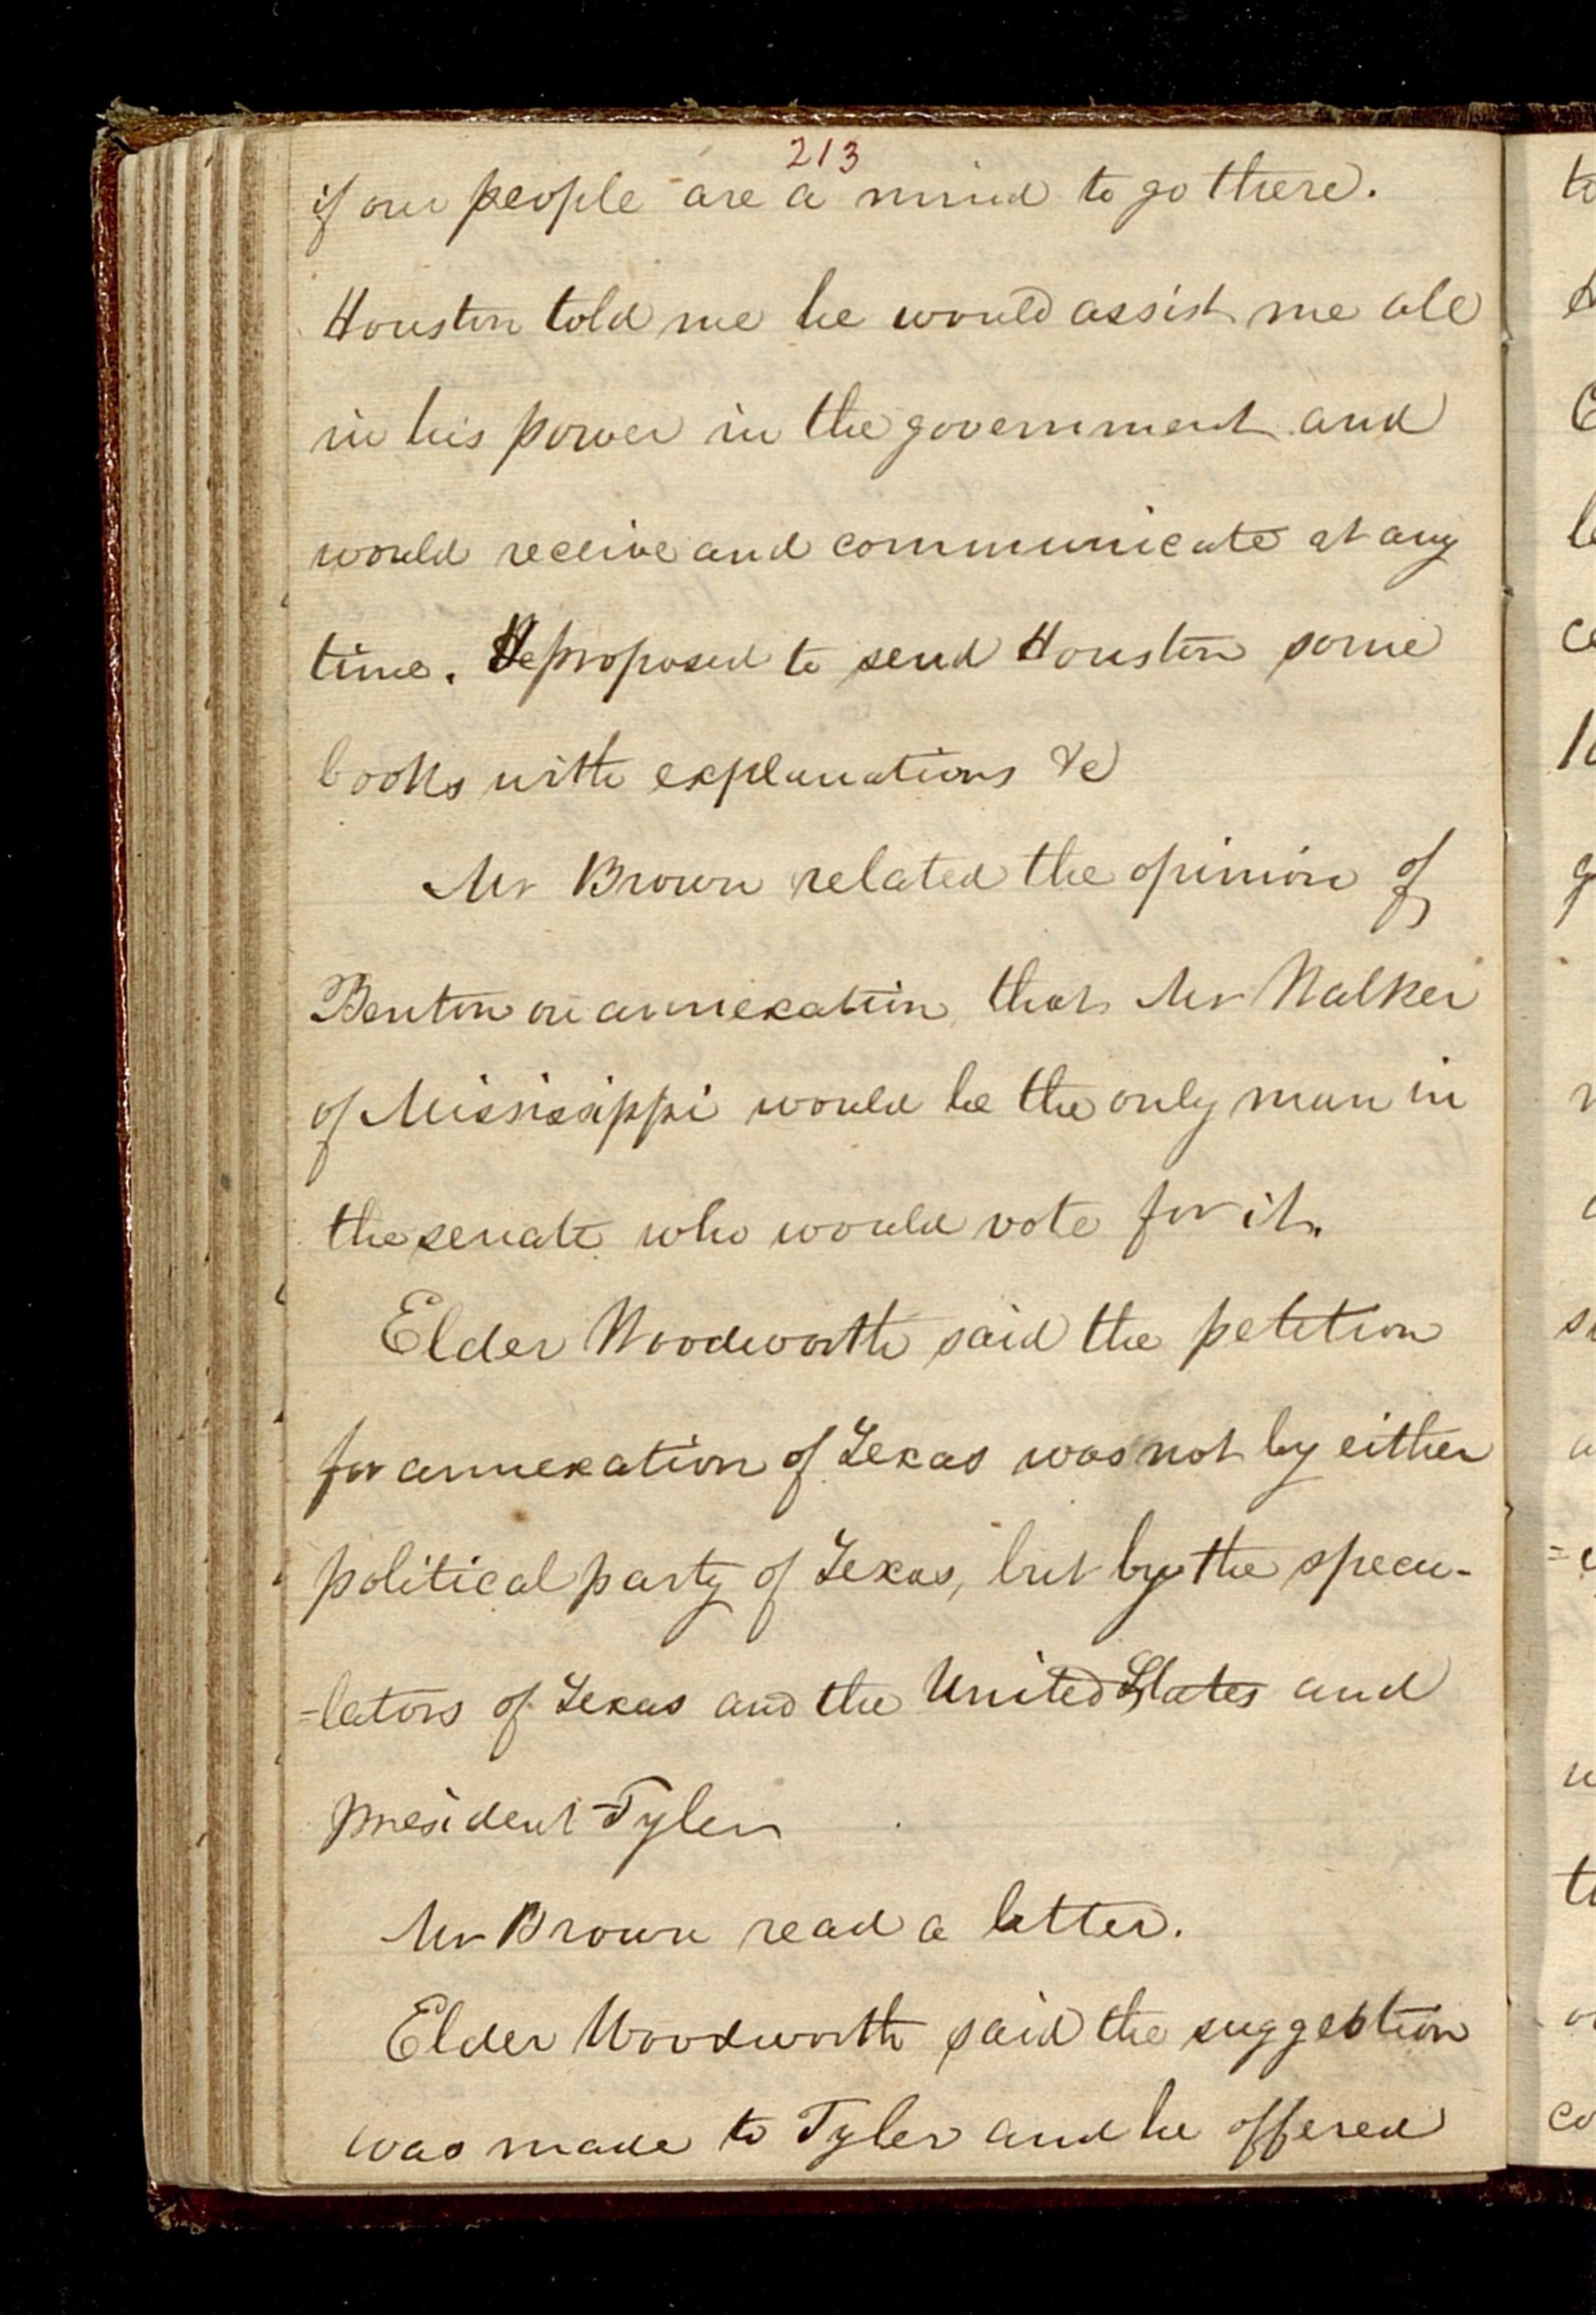 213
if our people are a mind to go there.
Houston told me he would assist me all
in his power in the government and
would receive and communicate at any
time. He proposed to send Houston some
books with explanations &c
Mr Brown related the opinion of
Benton on annexation that Mr Walker
of Mississippi would be the only man in
the senate who would vote for it.
Elder Woodworth said the petition
for annexation of Texas was not by either
political party of Texas, but by the specu-
=lators of Texas and the United States and
president Tyler
Mr Brown read a letter.
Elder Woodworth said the suggestion
was made to Tyler and he offered